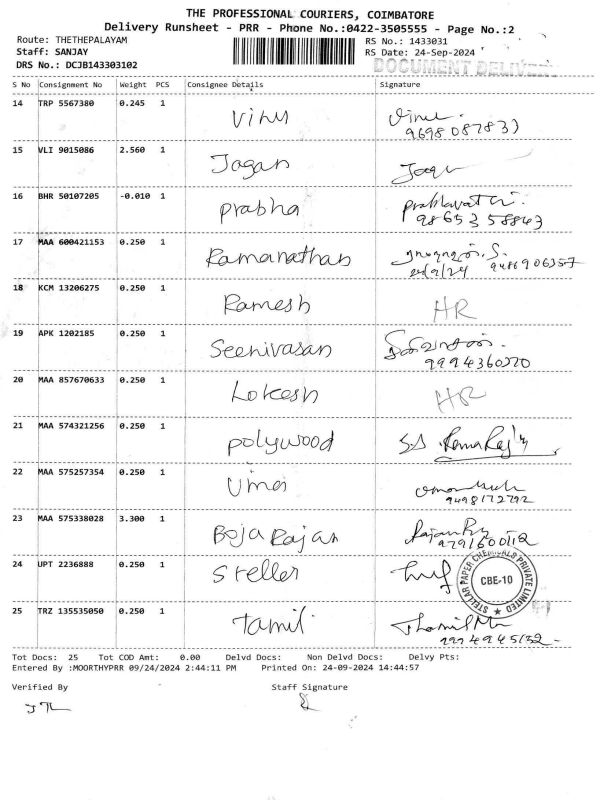 THE PROFESSIONAL COURIERS, COIMBATORE
Delivery Runsheet - PRR - Phone No.:0422-3505555 - Page No.:2
Route: THETHEPALAYAM RS No.: 1433031
Staff: SANJAY RS Date: 24-Sep-2024
DRS No.: DCJB143303102 DOCUMENT
S No Consignment No Weight PCS Consignee Details Signature
14 TRP 5567380 0.245 1 Vinu
15 VLI 9015086 2.560 1 Jagan
16 BHR 50107205 -0.010 1 Prabha
9865358843
17 MAA 600421153 0.250 1 Ramanathan
24/9/24 9486906357
18 KCM 13206275 0.250 1 Ramesh HR
19 APK 1202185 0.250 1 Seenivasan
9994360570
20 MAA 857670633 0.250 1 Lokesh HR
21 MAA 574321256 0.250 1 polywood
22 MAA 575257354 0.250 1 Uma
9498172792
23 MAA 575338028 3.300 1 BojaRajan
24 UPT 2236888 0.250 1 Steller STELLAR PAPER CHEMICALS PRIVATE LIMITED
CBE-10
25 TRZ 135535050 0.250 1 Tamil
Tot Docs: 25 Tot COD Amt: 0.00 Delvd Docs: Non Delvd Docs: Delvy Pts:
Entered By :MOORTHYPRR 09/24/2024 2:44:11 PM Printed On: 24-09-2024 14:44:57
Verified By Staff Signature